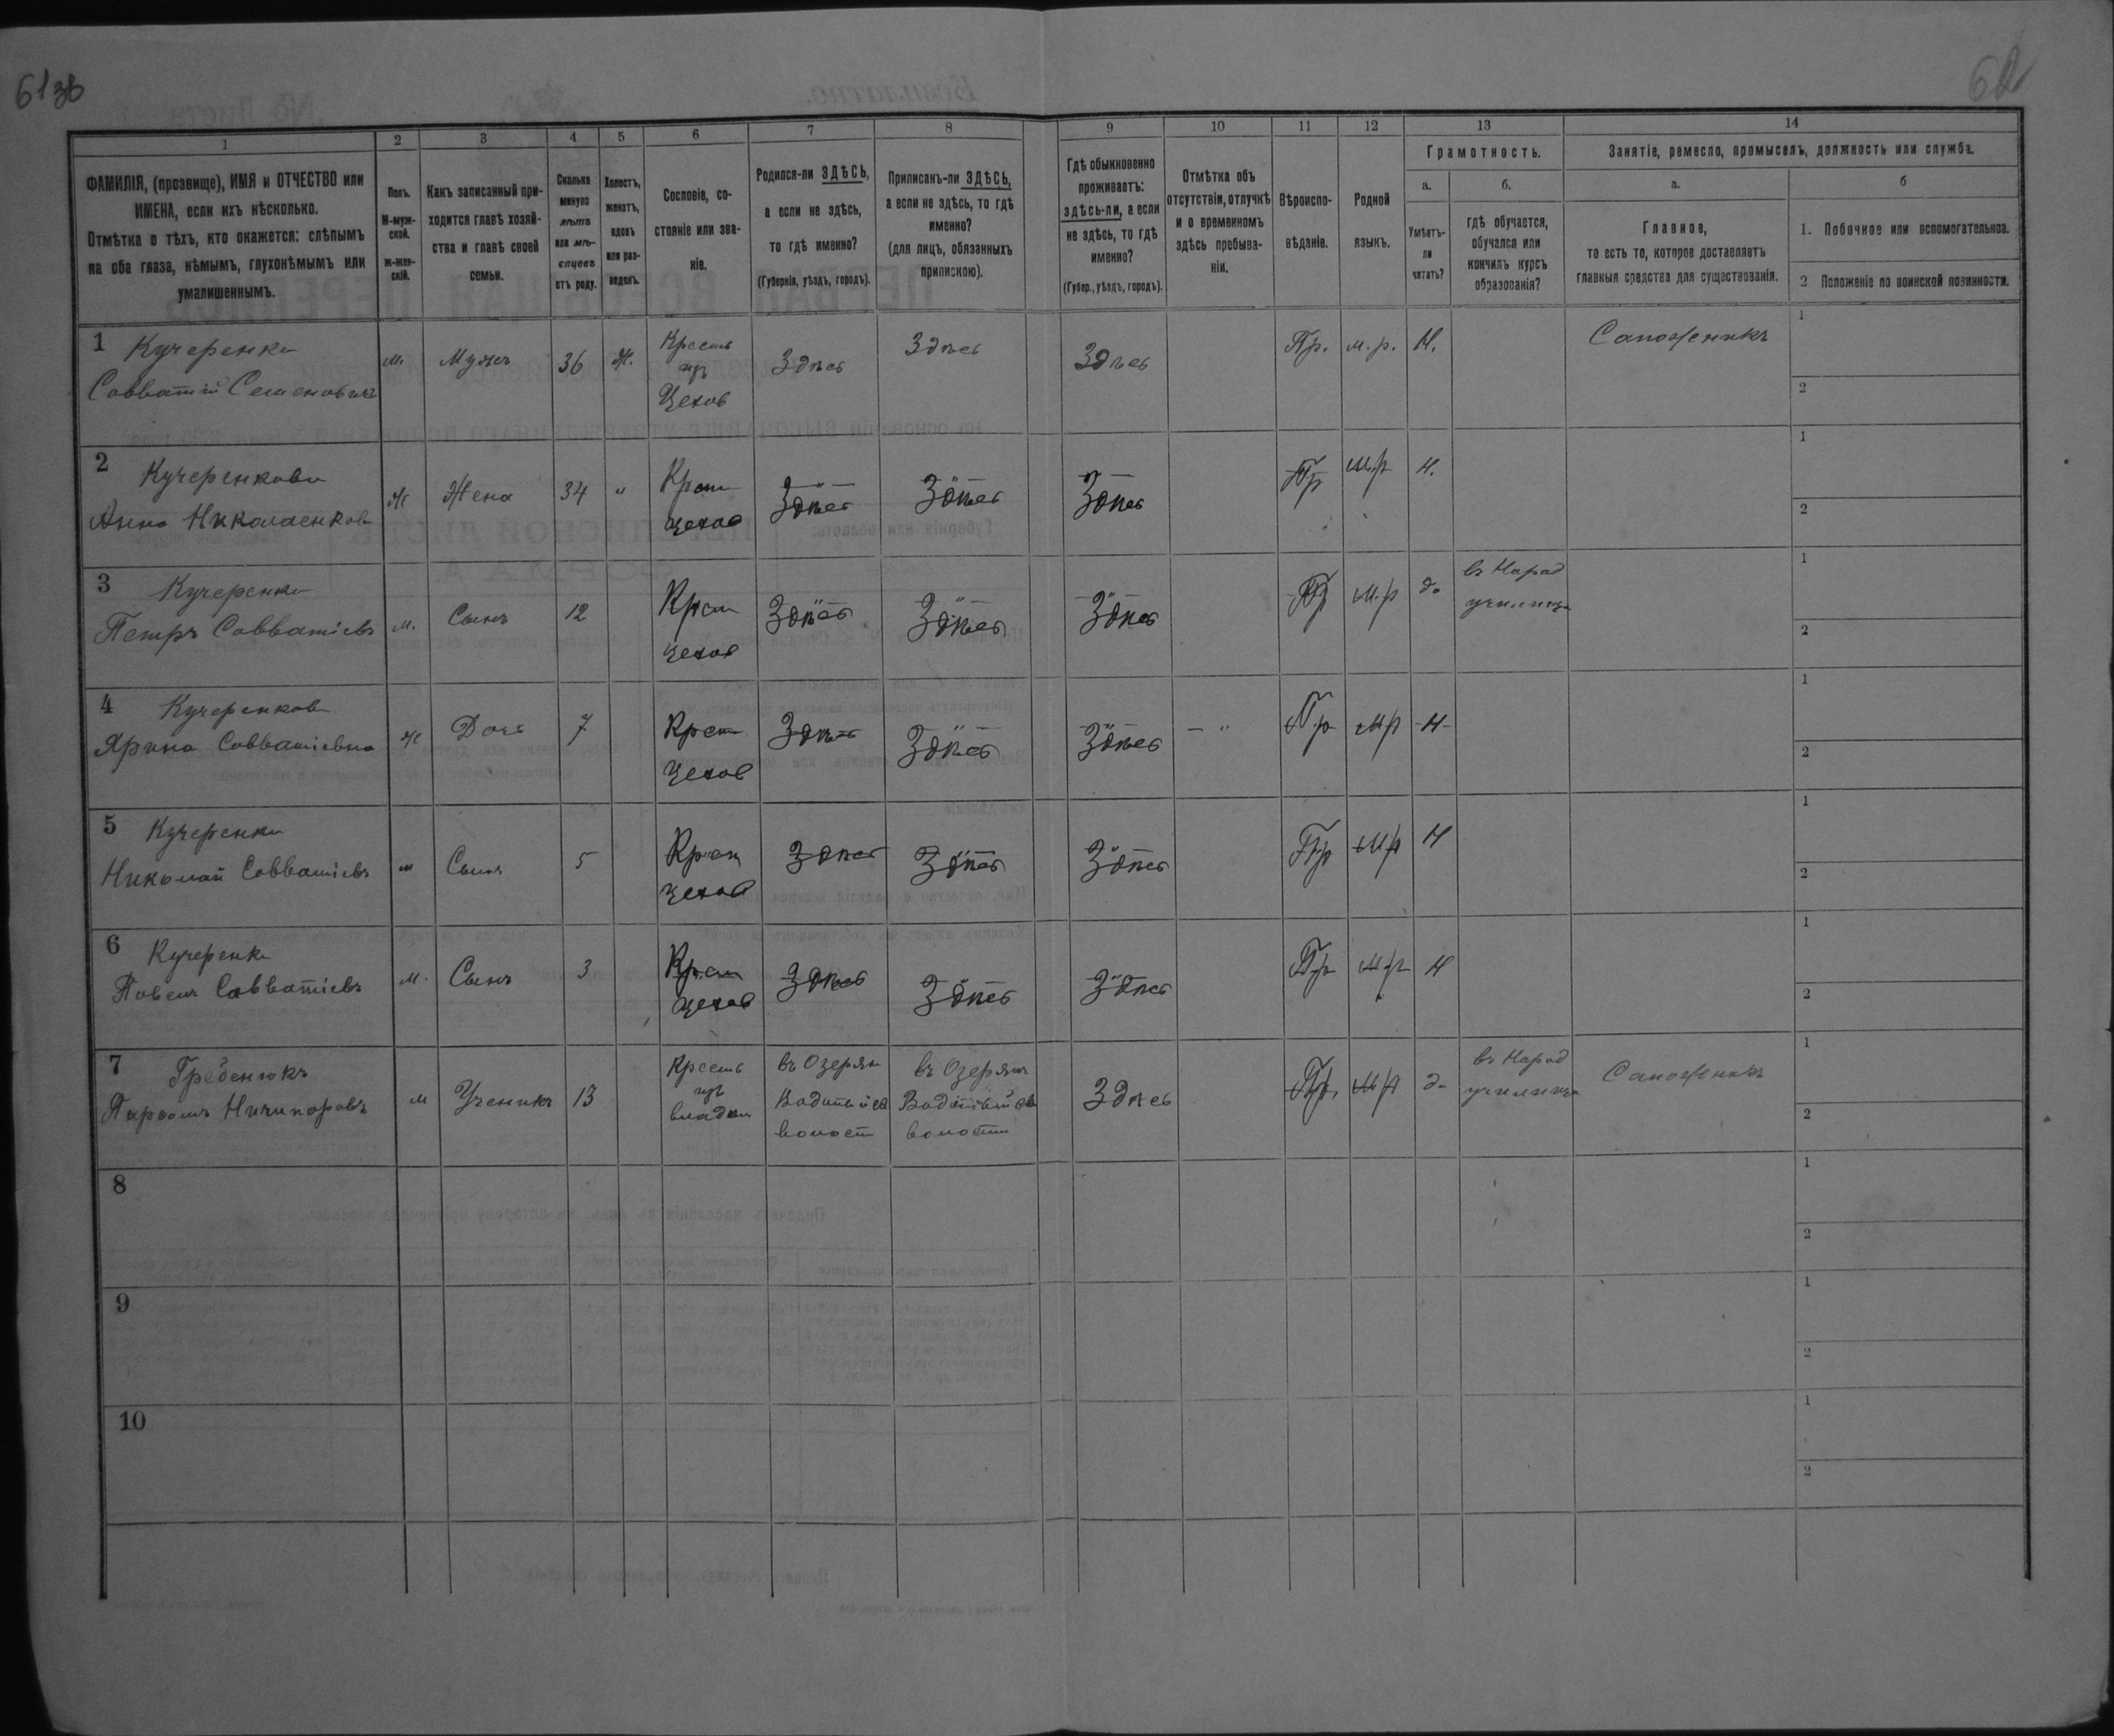 61 зв
62
1 2 3 4 5 6 7 8 9 10 11 12 13 14
ФАМИЛІЯ, (прозвище), ИМЯ и ОТЧЕСТВО или
ИМЕНА, если ихъ нѣсколько.
Отмѣтка о тѣхъ, кто окажется: слѣпымъ
на оба глаза, нѣмымъ, глухонѣмымъ или
умалишеннымъ.
Полъ.
М-муж-
ской.
ж-жен-
скій.
Какъ записанный при-
ходится главѣ хозяй-
ства и главѣ своей
семьи.
Сколько
минуло
лѣтъ
или мѣ-
сяцевъ
отъ роду.
Холостъ,
женатъ,
вдовъ
или раз-
веденъ.
Сословіе, со-
стояніе или зва-
ніе.
Родился-ли ЗДѢСЬ,
а если не здѣсь,
то гдѣ именно?
(Губернія, уѣздъ, городъ).
Приписанъ-ли ЗДѢСЬ,
а если не здѣсь, то гдѣ
именно?
(для лицъ, обязанныхъ
припискою).
Гдѣ обыкновенно
проживаетъ:
здѣсь-ли, а если
не здѣсь, то гдѣ
именно?
(Губер., уѣздъ, городъ).
Отмѣтка объ
отсутствіи, отлучкѣ
и о временномъ
здѣсь пребыва-
ніи.
Вѣроиспо-
вѣданіе.
Родной
языкъ.
Грамотность.
а.
Умѣетъ-
ли
читать?
б.
гдѣ обучается,
обучался или
кончилъ курсъ
образованія?
Занятіе, ремесло, промыселъ, должность или служба.
а.
Главное,
то есть то, которое доставляетъ
главныя средства для существованія.
б
1. Побочное или вспомогательное.
2 Положеніе по воинской повинности.
1 Кучеренко
Савватій Семеновичъ
м. Мужъ 36 Ж.
Крестьян
изъ
Цехов
Здѣсь Здѣсь Здѣсь Пр. м. р. Н. Сапожникъ
1
2
2 Кучеренкова
Анна Николаенкова
Ж Жена 34 "
Крест
цехов
Здѣсь Здѣсь Здѣсь Пр м.р Н.
1
2
3 Кучеренко
Петръ Савватіевъ
м. Сынъ 12
Крест
цехов
Здѣсь Здѣсь Здѣсь Пр м.р да
въ Народ
училище
1
2
4 Кучеренков
Ярина Савватіевна
Ж Дочь 7
Крест
цехов
Здѣсь Здѣсь Здѣсь — " Пр мр Н
1
2
5 Кучеренко
Николай Савватіевъ
м Сынъ 5
Крест
цехов
Здѣсь Здѣсь Здѣсь Пр мр Н
1
2
6 Кучеренко
Павелъ Савватіевъ
м. Сынъ 3
Крест
цехов
Здѣсь Здѣсь Здѣсь Пр мр Н
1
2
7 Гребенюкъ
Пархомъ Ничипоровъ
м Ученикъ 13
Крестьян
изъ
владѣл
въ Озерян
волости
въ Озерян
волости
Здѣсь Пр. мр да
въ Народ
училище
Сапожникъ
1
2
8
1
2
9
1
2
10
1
2